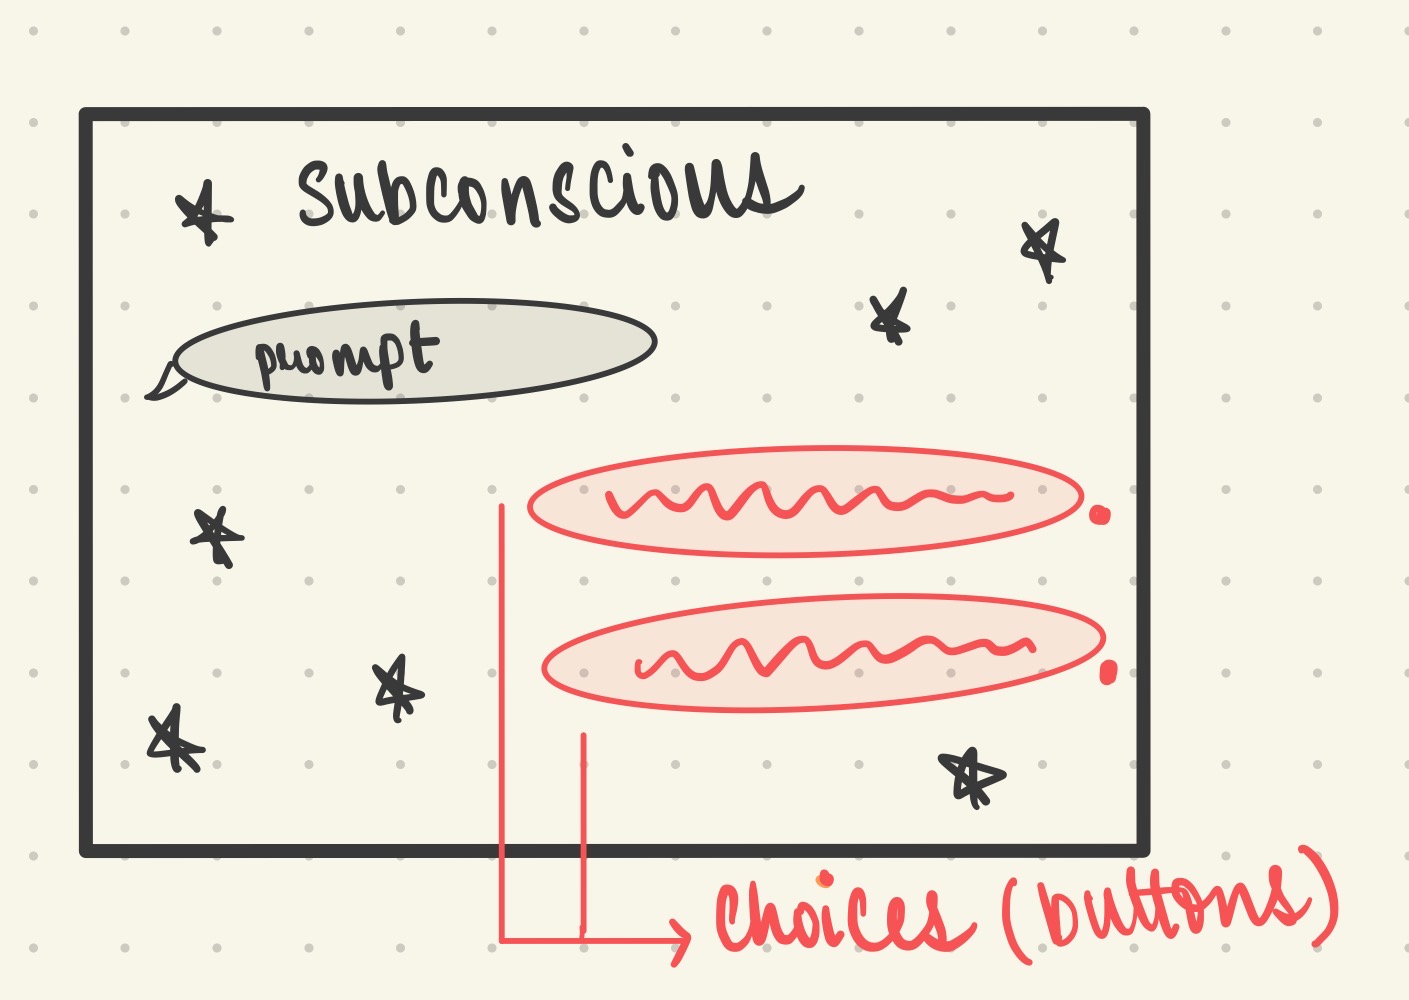 subconscious
prompt
choices (buttons)